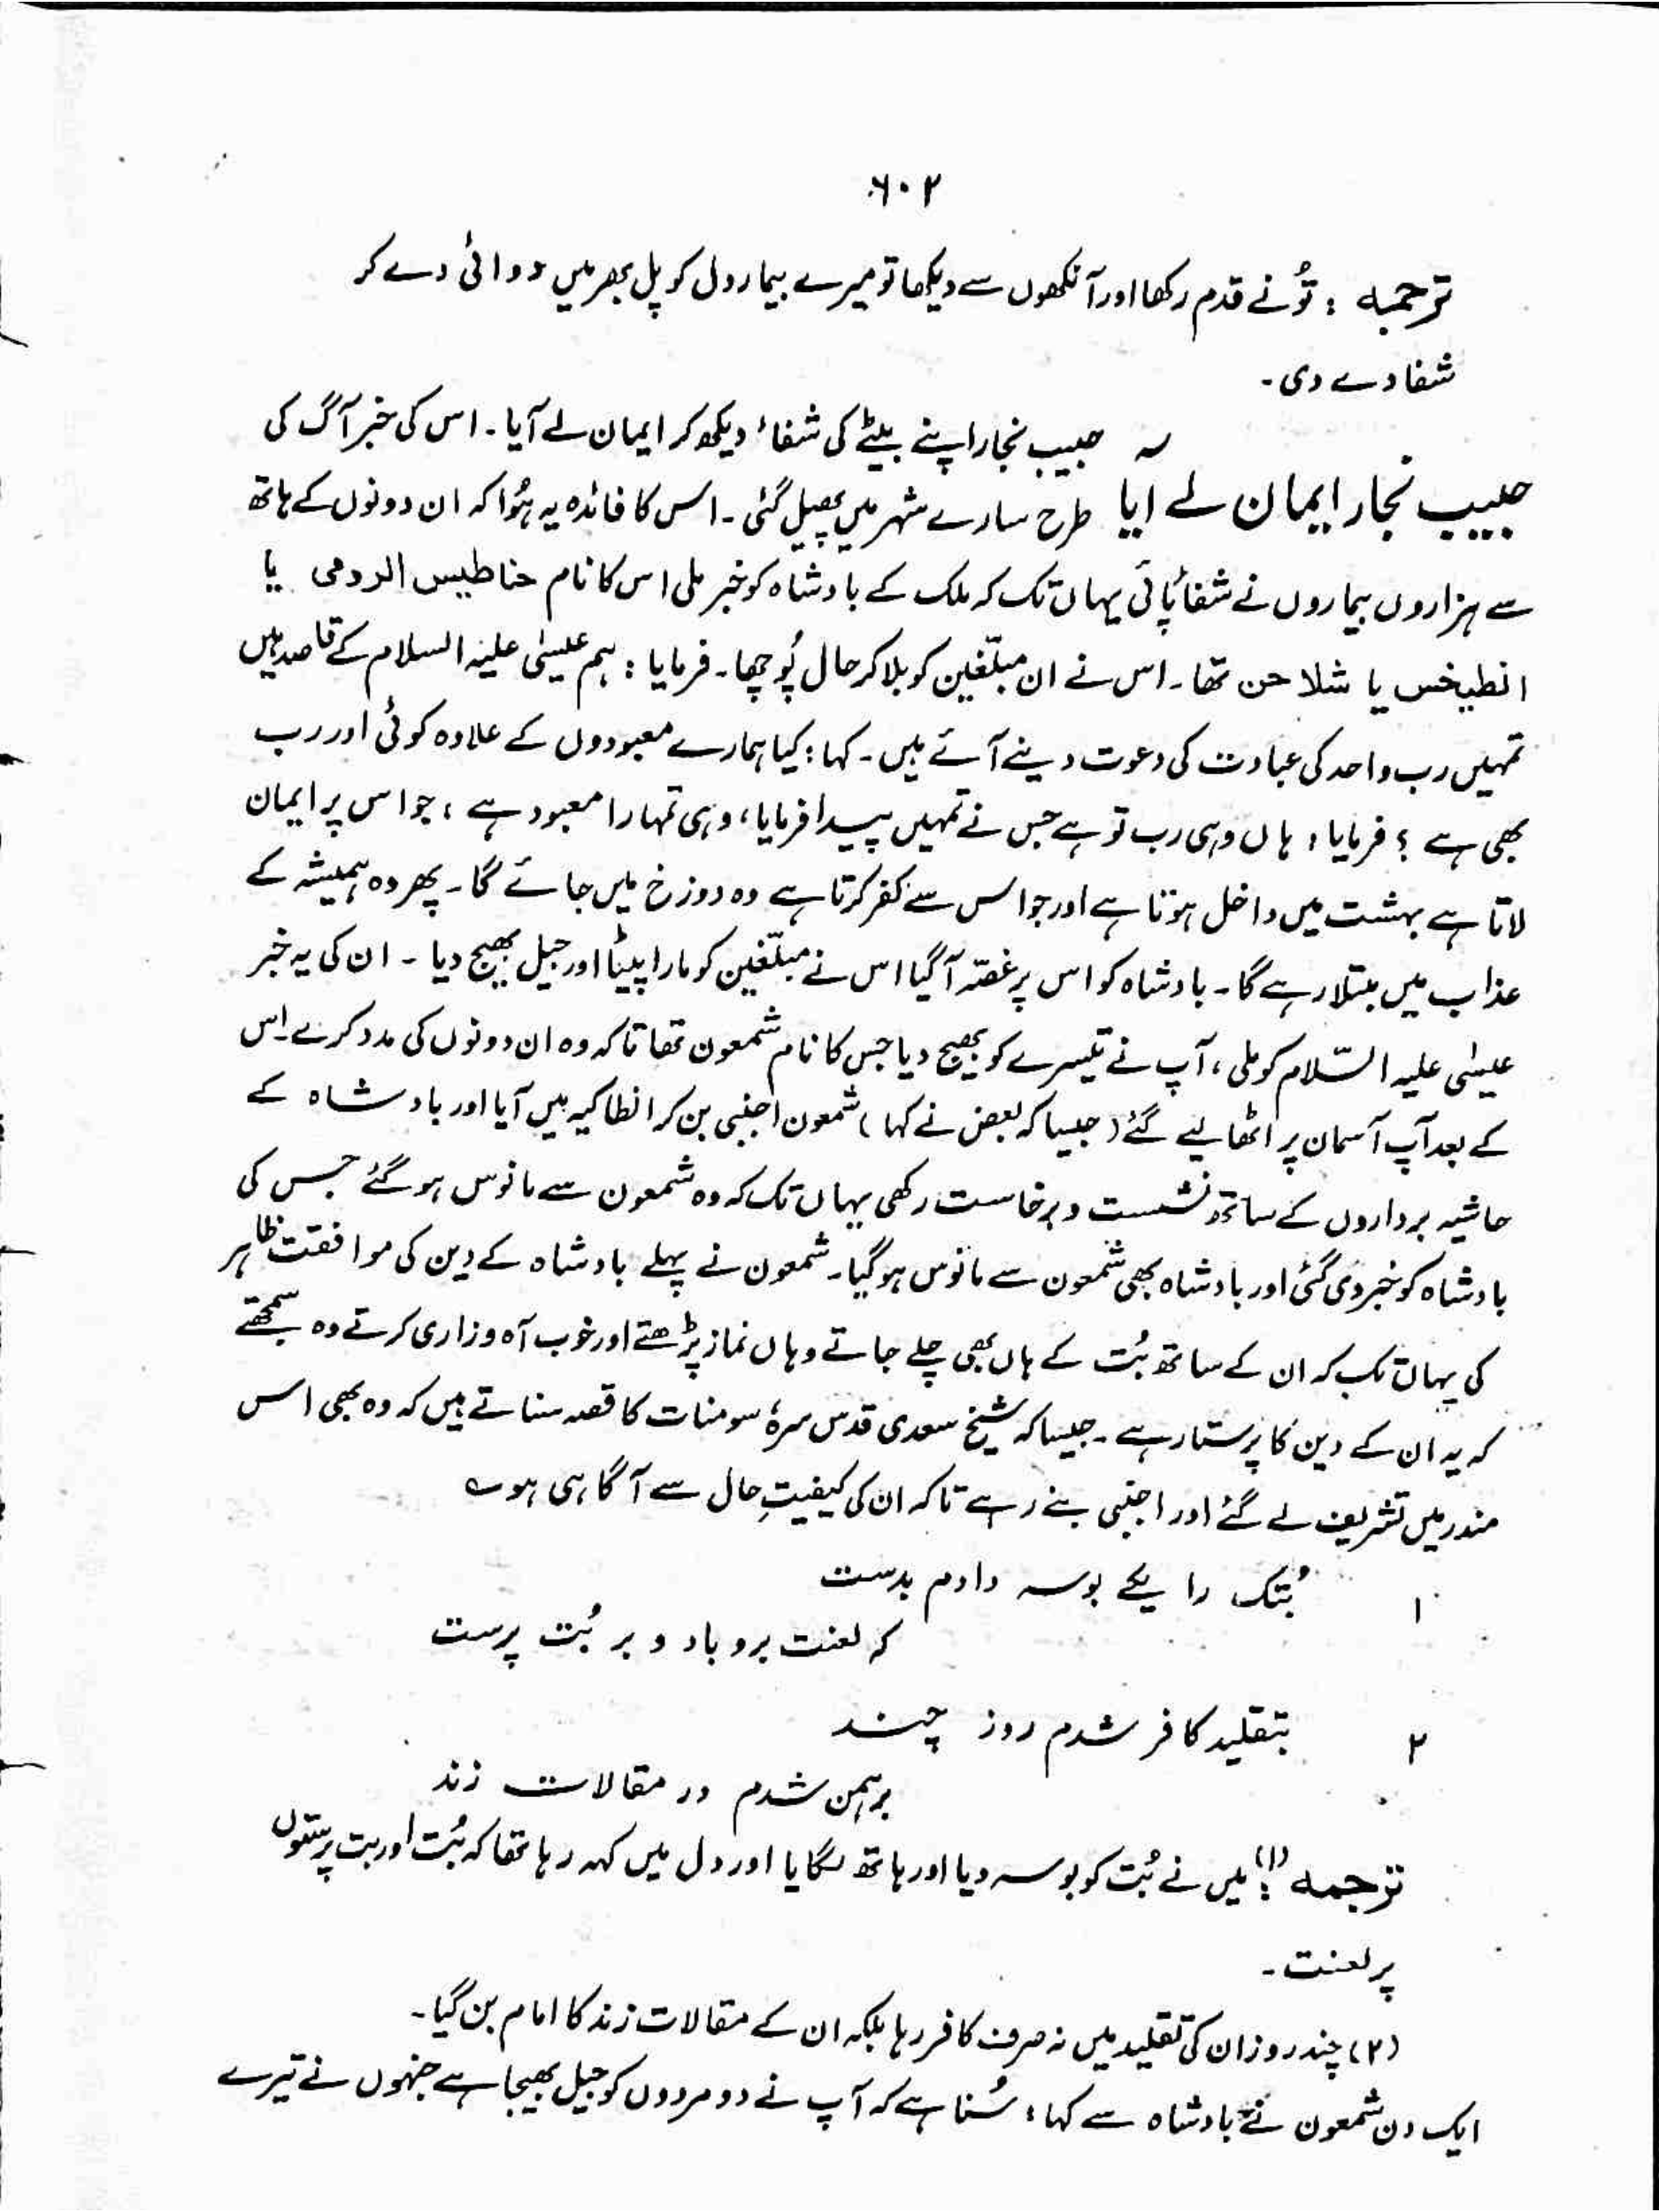 ۶۰۲
ترجمہ : تُو نے قدم رکھا اور آنکھوں سے دیکھا تو میرے بیمار دل کو پل بھر میں دوائی دے کر
شفا دے دی۔
حبیب نجار اپنے بیٹے کی شفاء دیکھ کر ایمان لے آیا۔ اس کی خبر آگ کی
حبیب نجار ایمان لے آیا طرح سارے شہر میں پھیل گئی۔ اس کا فائدہ یہ ہُوا کہ ان دونوں کے ہاتھ
سے ہزاروں بیماروں نے شفا پائی یہاں تک کہ ملک کے بادشاہ کو خبر ملی اس کا نام حناطیس الرومی یا
انطیخس یا شلاحن تھا۔ اس نے ان مبلّغین کو بلا کر حال پُوچھا۔ فرمایا : ہم عیسٰی علیہ السلام کے قاصد ہیں
تمہیں رب واحد کی عبادت کی دعوت دینے آئے ہیں۔ کہا : کیا ہمارے معبودوں کے علاوہ کوئی اور رب
بھی ہے ؟ فرمایا : ہاں وہی رب تو ہے جس نے تمہیں پیدا فرمایا، وہی تمہارا معبود ہے ، جو اس پر ایمان
لاتا ہے بہشت میں داخل ہوتا ہے اور جو اس سے کفر کرتا ہے وہ دوزخ میں جائے گا۔ پھر وہ ہمیشہ کے
عذاب میں مبتلا رہے گا۔ بادشاہ کو اس پر غصّہ آگیا اس نے مبلّغین کو مارا پیٹا اور جیل بھیج دیا۔ ان کی یہ خبر
عیسٰی علیہ السّلام کو ملی ، آپ نے تیسرے کو بھیج دیا جس کا نام شمعون تھا تاکہ وہ ان دونوں کی مدد کرے۔ اس
کے بعد آپ آسمان پر اٹھا لیے گئے (جیسا کہ بعض نے کہا) شمعون اجنبی بن کر انطاکیہ میں آیا اور بادشاہ کے
حاشیہ برداروں کے ساتھ نشست و برخاست رکھی یہاں تک کہ وہ شمعون سے مانوس ہو گئے جس کی
بادشاہ کو خبر دی گئی اور بادشاہ بھی شمعون سے مانوس ہو گیا۔ شمعون نے پہلے بادشاہ کے دین کی موافقت ظاہر
کی یہاں تک کہ ان کے ساتھ بُت کے ہاں بھی چلے جاتے وہاں نماز پڑھتے اور خوب آہ و زاری کرتے وہ سمجھتے
کہ یہ ان کے دین کا پرستار ہے۔ جیسا کہ شیخ سعدی قدس سرہٗ سومنات کا قصہ سناتے ہیں کہ وہ بھی اس
مندر میں تشریف لے گئے اور اجنبی بنے رہے تاکہ ان کی کیفیتِ حال سے آگاہی ہو ؎
۱ بُتک را یکے بوسہ دادم بدست
کہ لعنت برو باد و بر بُت پرست
۲ بتقلید کافر شدم روز چند
برہمن شدم در مقالات زند
ترجمہ (۱): میں نے بُت کو بوسہ دیا اور ہاتھ لگایا اور دل میں کہہ رہا تھا کہ بُت اور بت پرستوں
پر لعنت۔
(۲) چند روز ان کی تقلید میں نہ صرف کافر رہا بلکہ ان کے مقالات زند کا امام بن گیا۔
ایک دن شمعون نے بادشاہ سے کہا : سُنا ہے کہ آپ نے دو مردوں کو جیل بھیجا ہے جنہوں نے تیرے